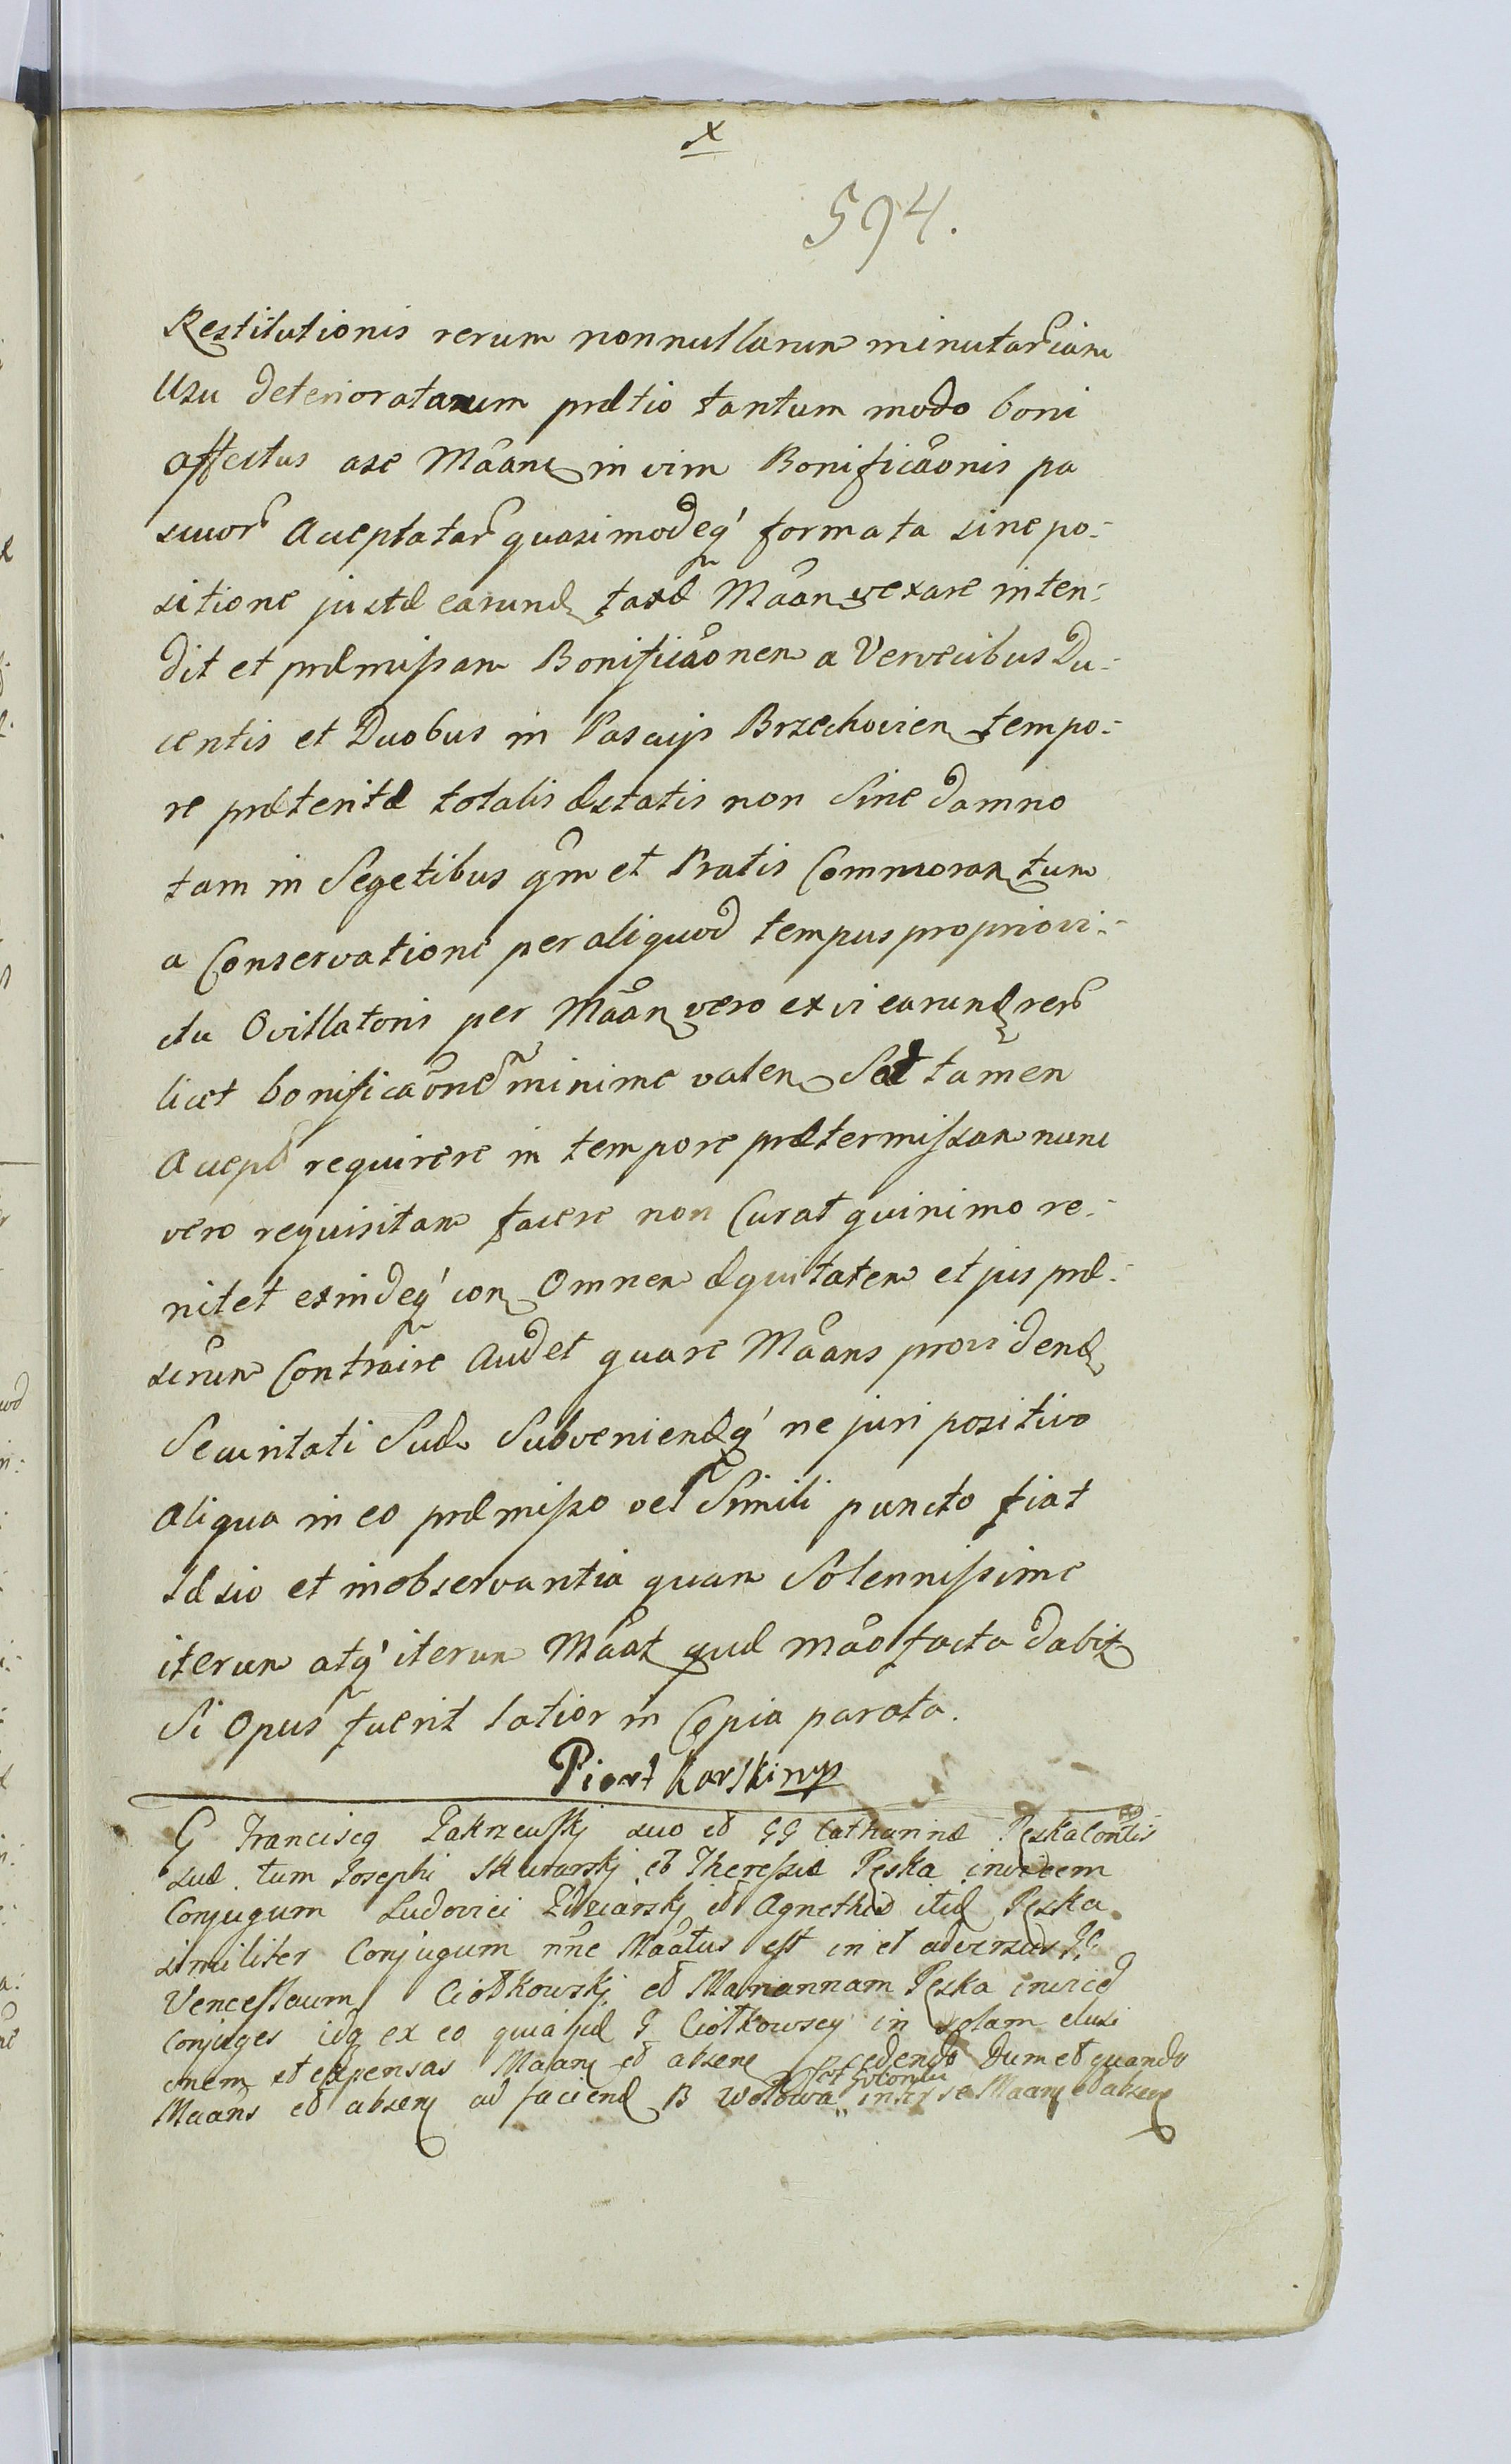 x
594.
Restitutionis rerum nonnullarum minutarum
Usu deterioratarum prætio tantum modo boni
affectus a se Mãane in vim Bonificãonis pa
suuor Acceptatar quasimodeq' formata sine po-
sitione justæ earund taxæ Mãan vexare inten-
dit et præmissam Bonificãonem a Vervecibus Du-
centis et Duobus in Pascuis Brzechovien tempo-
re præteritæ totalis æstatis non Sine damno
tam in Segetibus qm et Pratis Commoran tum
a Conservatione per aliquod tempus proprio vi-
ctu Ovillatoris per Mãan vero ex vi earund rer
licet bonificãone minime valen Sed tamen
Accept requirere in tempore prætermissam nunc
vero requisitam facere non Curat quinimo re-
nitet exindeq' con Omnem æquitatem et jus præ-
scrum Contraire Audet quare Mãans providend
Securitati Suæ Subveniendq' ne juri positivo
aliqua in eo præmisso vel Simili puncto fiat
læsio et inobservantia quam Solennissime
iterum atq' iterum Mãat quæ mão facta dabit
Si Opus fuerit latior in Copia parata.
Piotr Karski mp
G Franciscq Zakrzewskj suo et GG Catharinæ Pęska Contlis
suæ tum Josephi Skurarskj et Theressiæ Pęska invicem
Conjugum Ludovici Zdziarskj et Agnethæ itid Pęska
similiter Conjugum nne Mãatus est in et adversus GG
Venceslaum Ciołkowskj et Mariannam Pęska inviced
Conjuges idq ex eo quia jid G Ciołkowscy in solam elusi
onem et expensas Maan et absen pcedendo Dum et quando
et Golonki
Maans et absen ad faciend B Wołowa inter se Maan et absen